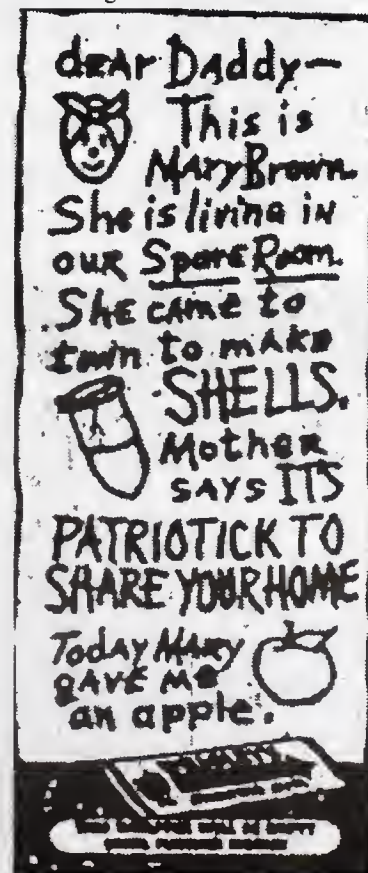 dEAr DAddy—
This is
MAry Brown.
She is living iN
our Spare Room.
She CAME to
town to mAKe
SHELLS.
Mother
SAYS ITS
PATRIOTICK TO
SHARE YOUR HOME
TodAY MARY
gAVE Me
an apple.